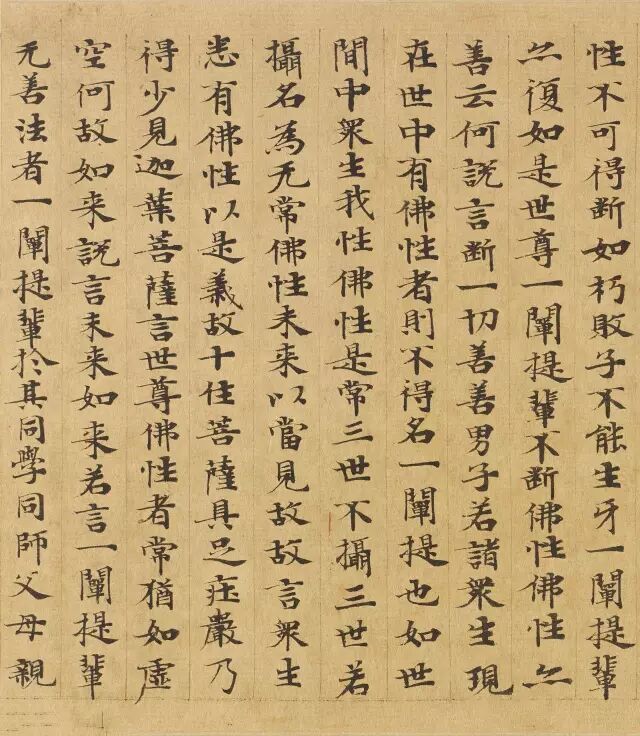 性不可得断如朽敗子不能生牙一闡提輩
亦復如是世尊一闡提輩不断佛性佛性亦
善云何說言断一切善善男子若諸衆生現
在世中有佛性者則不得名一闡提也如世
間中衆生我性佛性是常三世不攝三世若
攝名為无常佛性未来以當見故故言衆生
悉有佛性以是義故十住菩薩具足庄嚴乃
得少見迦葉菩薩言世尊佛性者常猶如虛
空何故如来說言未来如来若言一闡提輩
无善法者一闡提輩於其同學同師父母親